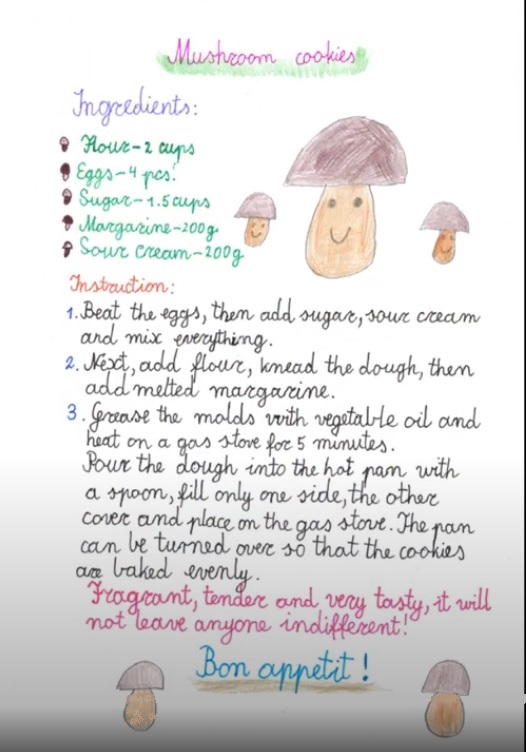 Mushroom cookies
Ingredients:
Flour-2 cups
Eggs-4 pcs.
Sugar-1.5 cups
Margarine-200g
Sour cream-200g
Instruction:
1. Beat the eggs, then add sugar, sour cream
and mix everything.
2. Next, add flour, knead the dough, then
add melted margarine.
3. Grease the molds with vegetable oil and
heat on a gas stove for 5 minutes.
Pour the dough into the hot pan with
a spoon, fill only one side, the other
cover and place on the gas stove. The pan
can be turned over so that the cookies
are baked evenly.
Fragrant, tender and very tasty, it will
not leave anyone indifferent!
Bon appetit!